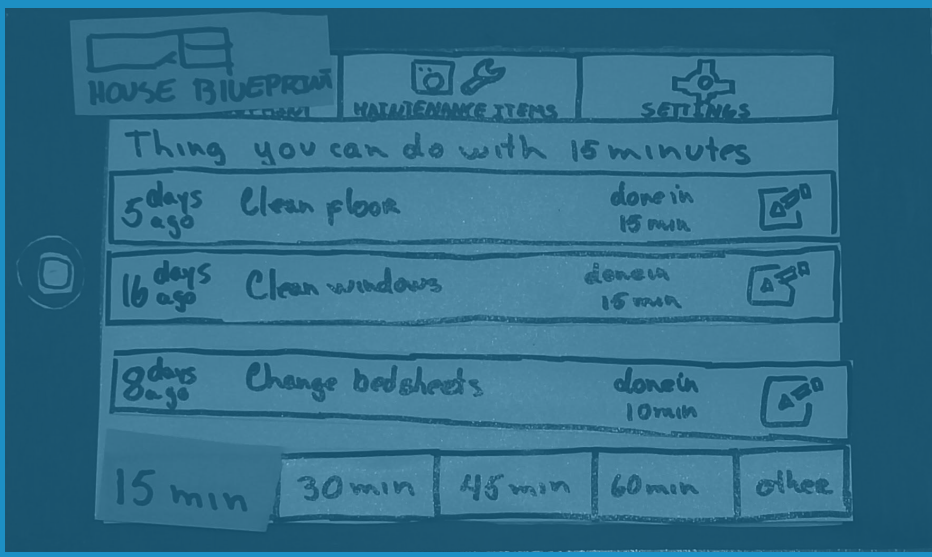 HOUSE BLUEPRINT
MAINTENANCE ITEMS
SETTINGS
Thing you can do with 15 minutes
5 days ago
Clean floor
done in
15 min
16 days ago
Clean windows
done in
15 min
8 days ago
Change bedsheets
done in
10 min
15 min
30 min
45 min
60 min
other